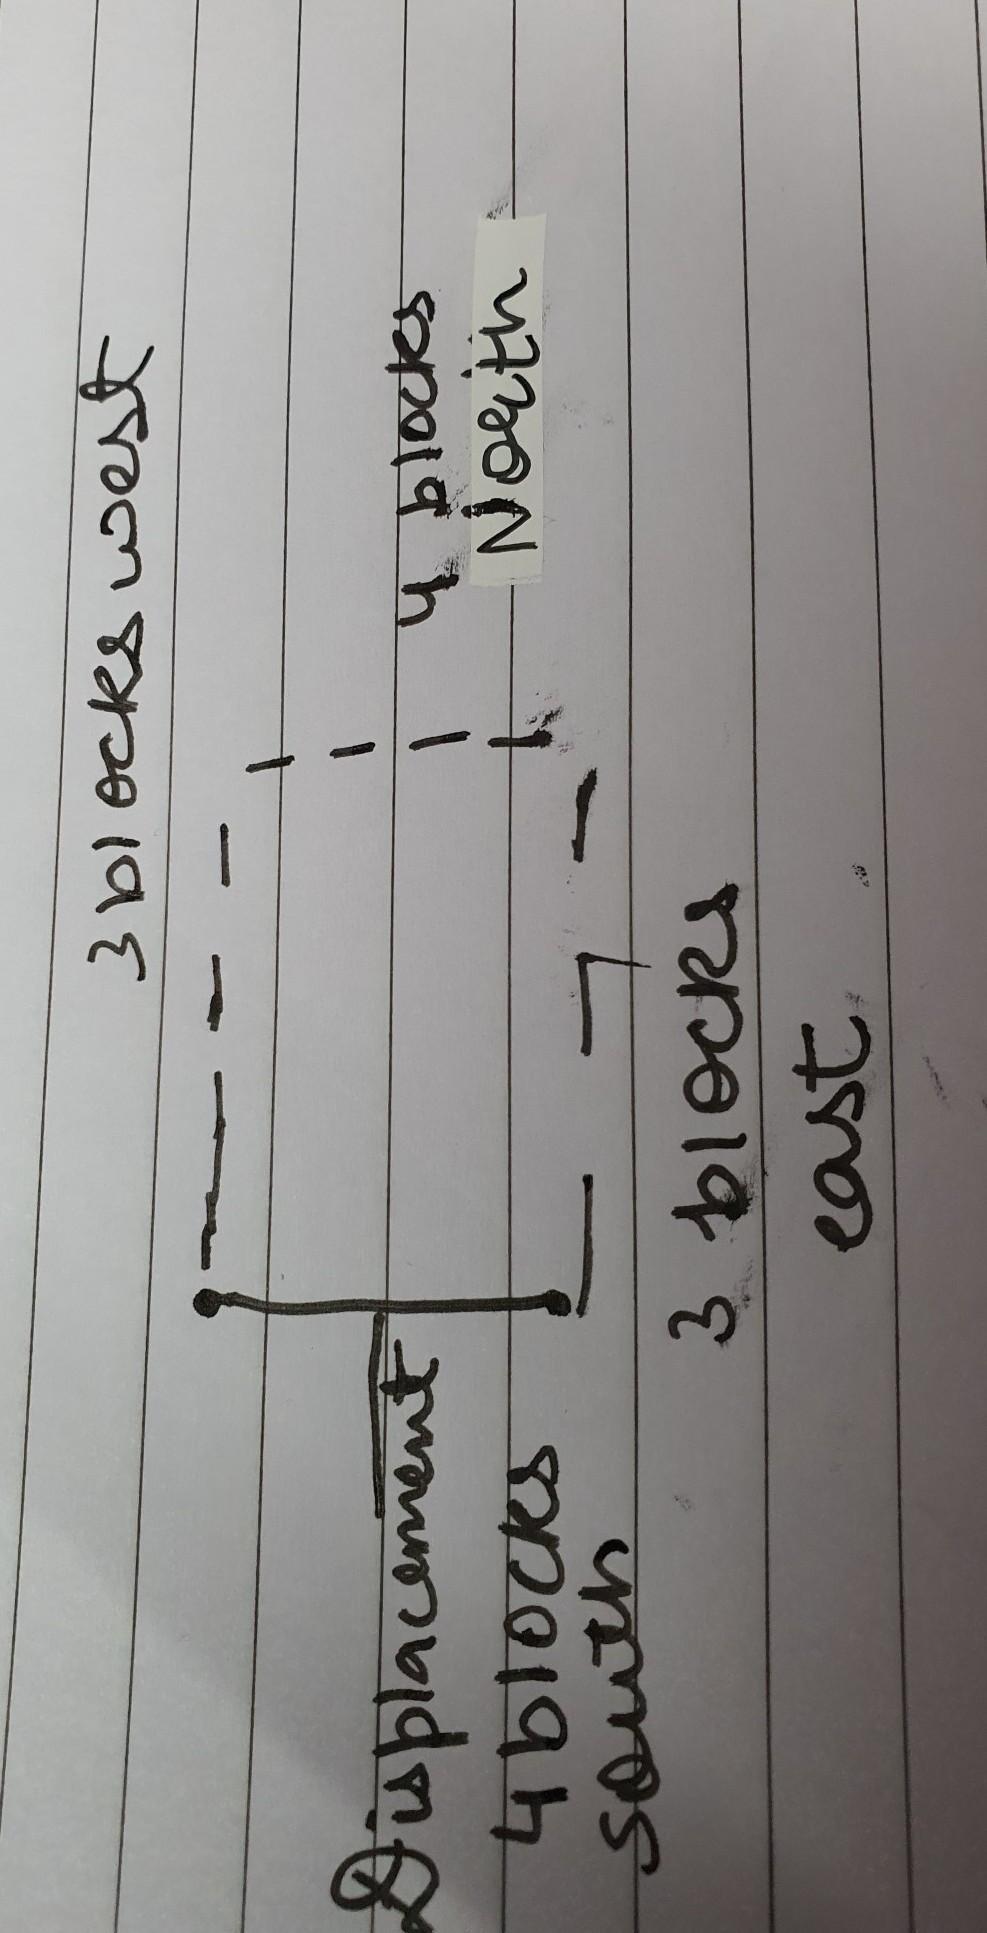 3 blocks west
4 blocks
North
Displacement
4 blocks
south
3 blocks
east